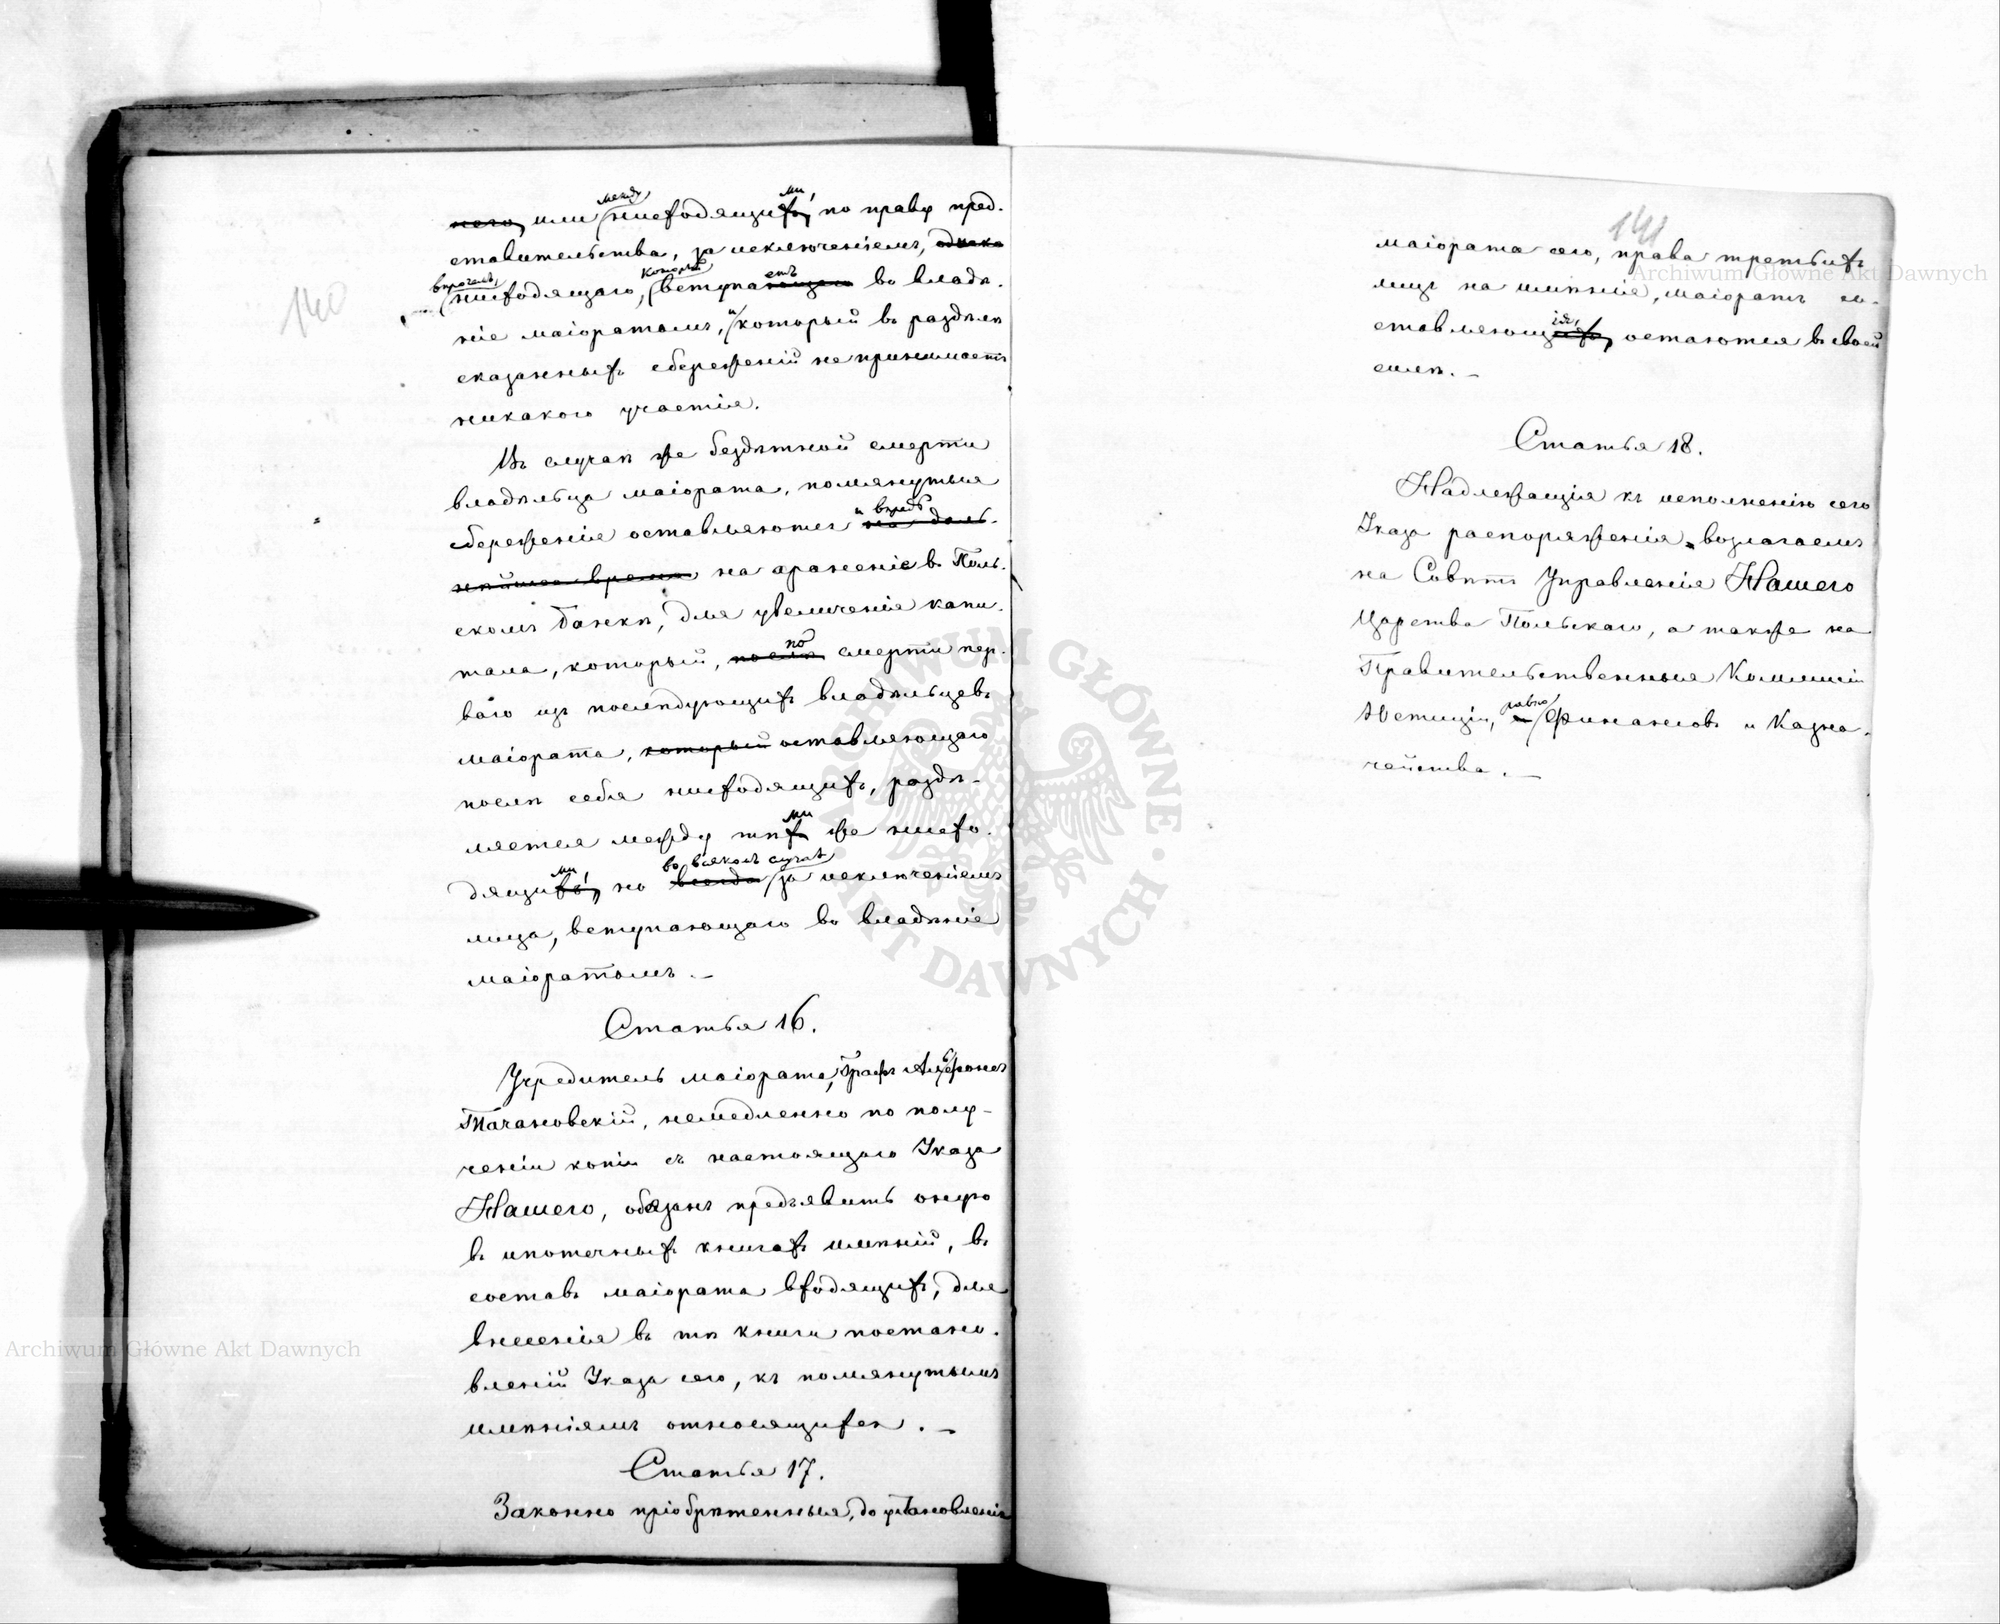 140
между ми
него, или нисходящихъ, по праву пред-
ставительства, за исключеніемъ, однако
впрочемъ, который етъ
нисходящаго, вступающаго во владѣ-
ніе маіоратомъ, и который въ раздѣлѣ
сказанныхъ сбереженій не принимаетъ
никакого участія.
Въ случаѣ же бездѣтной смерти
владѣльца маіората, помянутыя
и впредь
сбереженія оставляются на даль-
нѣйшее время, на храненіе въ Поль-
скомъ Банкѣ, для увеличенія капи-
по
тала, который, послѣ смерти пер-
ваго изъ послѣдующихъ владѣльцевъ
маіората, который оставляющаго
послѣ себя нисходящихъ, раздѣ-
ми
ляется между тѣхъ же нисхо-
ми, во всякомъ случаѣ
дящихъ, но всегда за исключеніемъ
лица, вступающаго во владѣніе
маіоратомъ. —
Статья 16.
Учредитель маіората, Графъ Альфонсъ
Тачановскій, немедленно по полу-
ченіи копіи съ настоящаго Указа
Нашего, обязанъ предъявить оную
въ ипотечныхъ книгахъ имѣній, въ
составъ маіората входящихъ, для
внесенія въ тѣ книги постано-
вленій Указа сего, къ помянутымъ
имѣніямъ относящихся. —
Статья 17.
Законно пріобрѣтенныя, до установленія
141
маіората сего, права третьихъ
лицъ на имѣнія, маіоратъ со-
ія,
ставляющихъ, остаются въ своей
силѣ. —
Статья 18.
Надлежащія къ исполненію сего
Указа распоряженія, возлагаемъ
на Совѣтъ Управленія Нашего
Царства Польскаго, а также на
Правительственныя Коммисіи
равно
Юстиціи, и Финансовъ и Казна-
чейства. —
Archiwum Główne Akt Dawnych
Archiwum Główne Akt Dawnych
ARCHIWUM GŁÓWNE AKT DAWNYCH